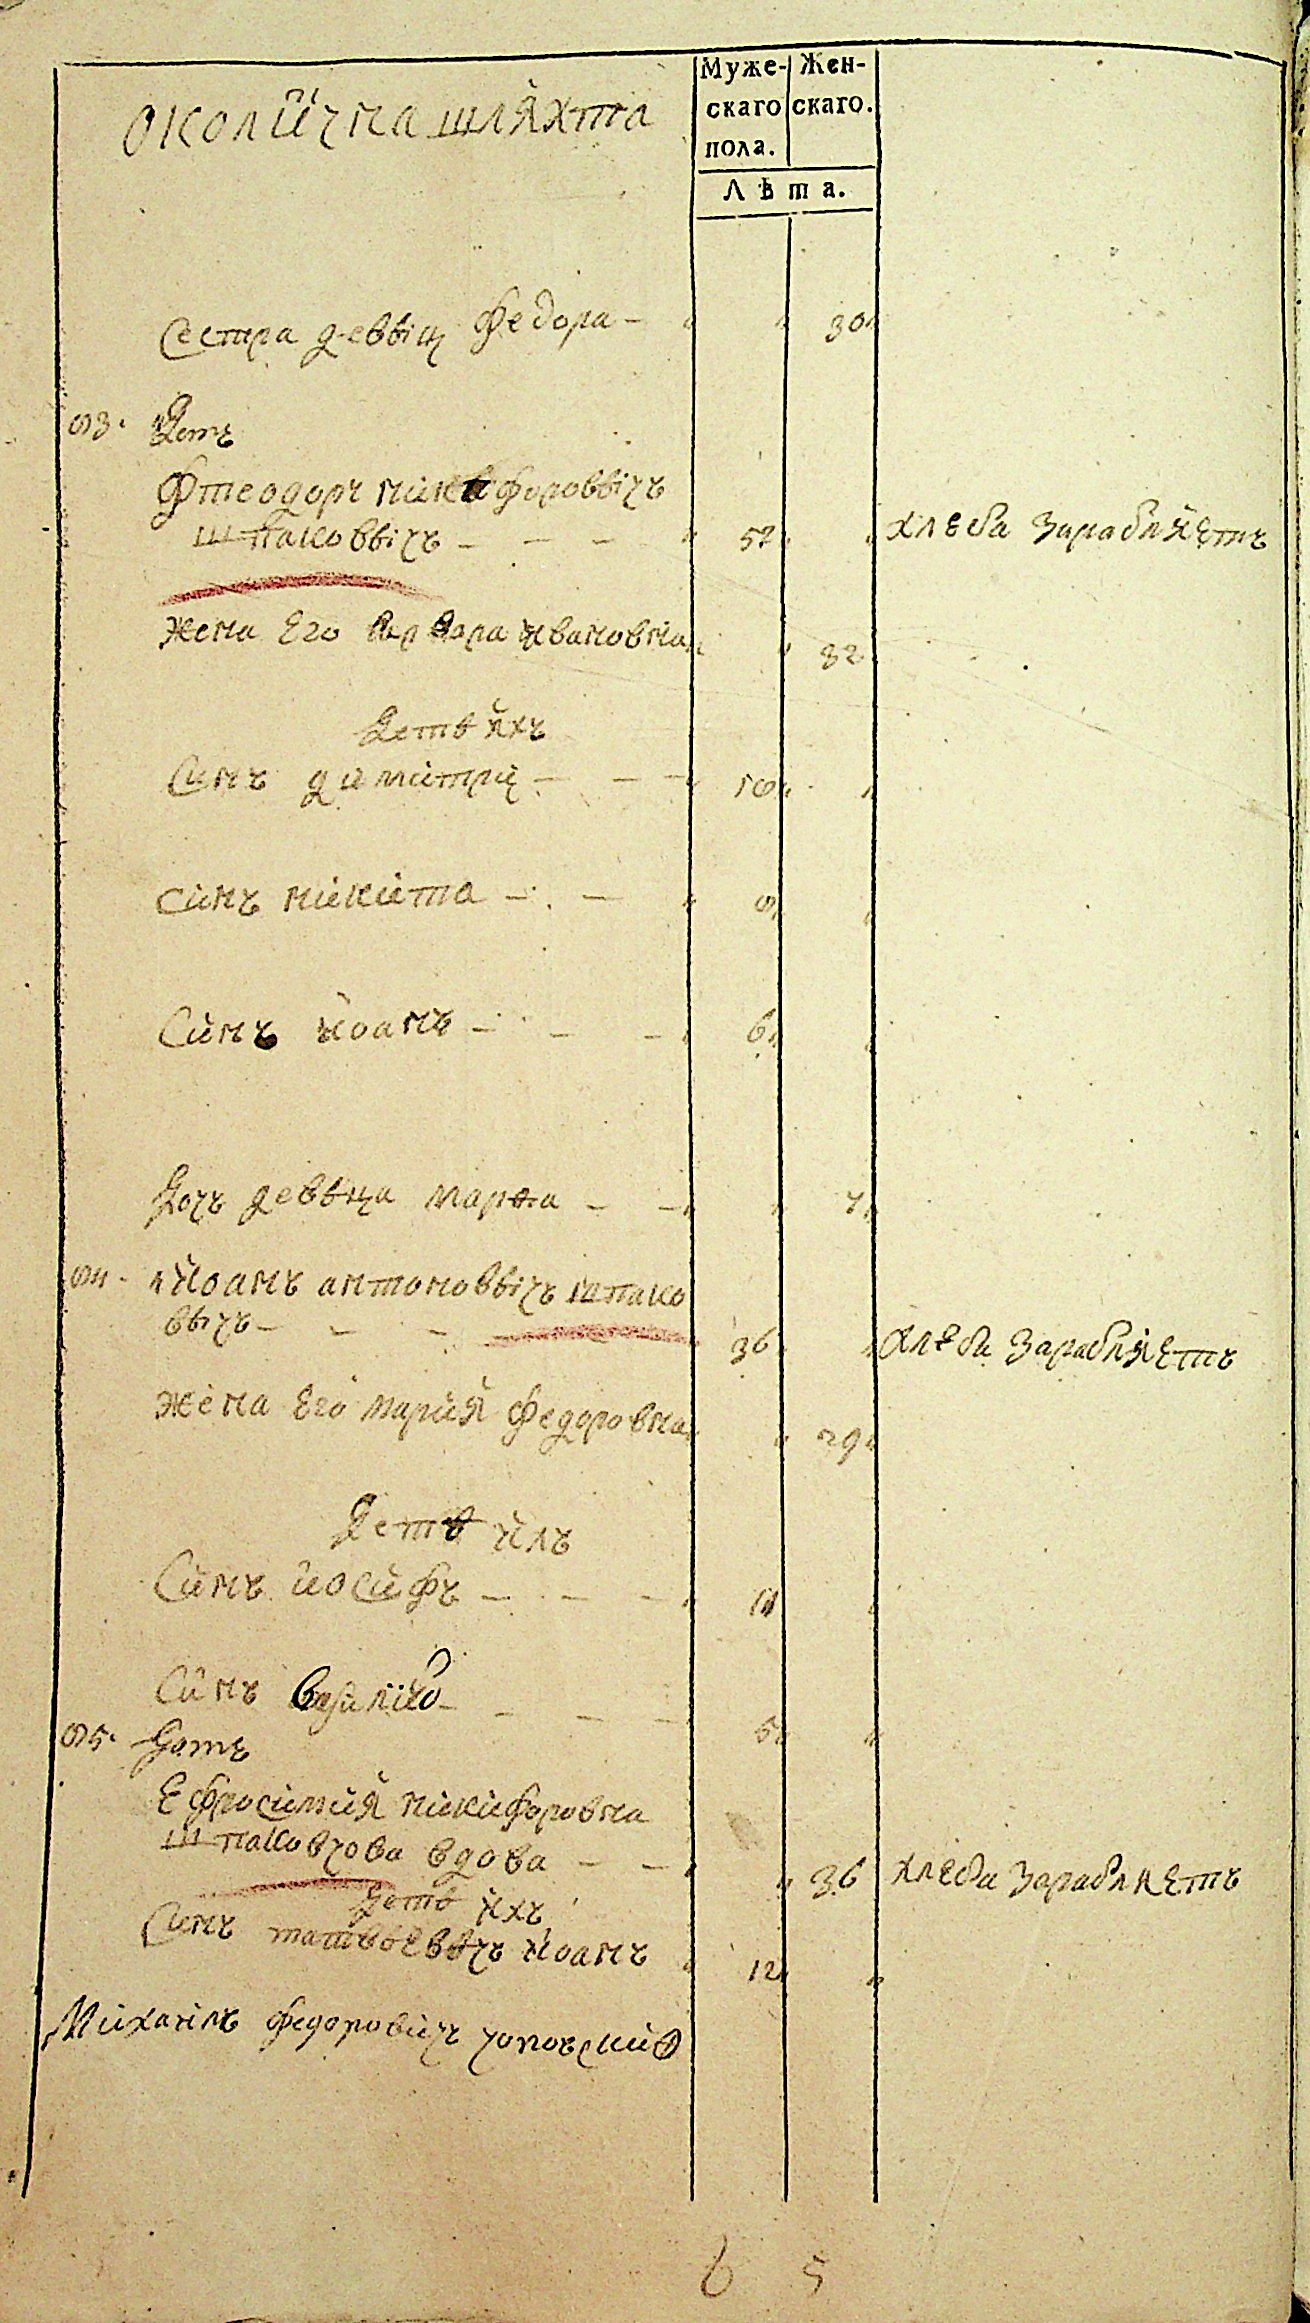 околична шляхта
Муже-
скаго
пола.
Жен-
скаго.
Лѣта.
Сестра деввіц Федора — 30
93. Дотъ
Фтеодоръ никифороввічъ
шпаковвічъ — — — 52 хлеба зарабляетъ
жена Его варвара ивановна 32
Дете ихъ
Синъ димитрий — — — 16
Синъ никита — — 9
Синъ иоанъ — — — 6
Дочъ деввица марта — — 7
94. иоанъ антоноввічъ шпако
ввічъ — — — 36 хлеба зарабляетъ
жена Его мария федоровна 29
Дете ихъ
Синъ иосифъ — — — 11
Синъ — — — 5
95. Дотъ
Ефросиния никифоровна
шпаковчова вдова — — 36 хлеба зарабляетъ
Дете ихъ
Синъ иоанъ 12
Михаилъ федоровичъ
6 5